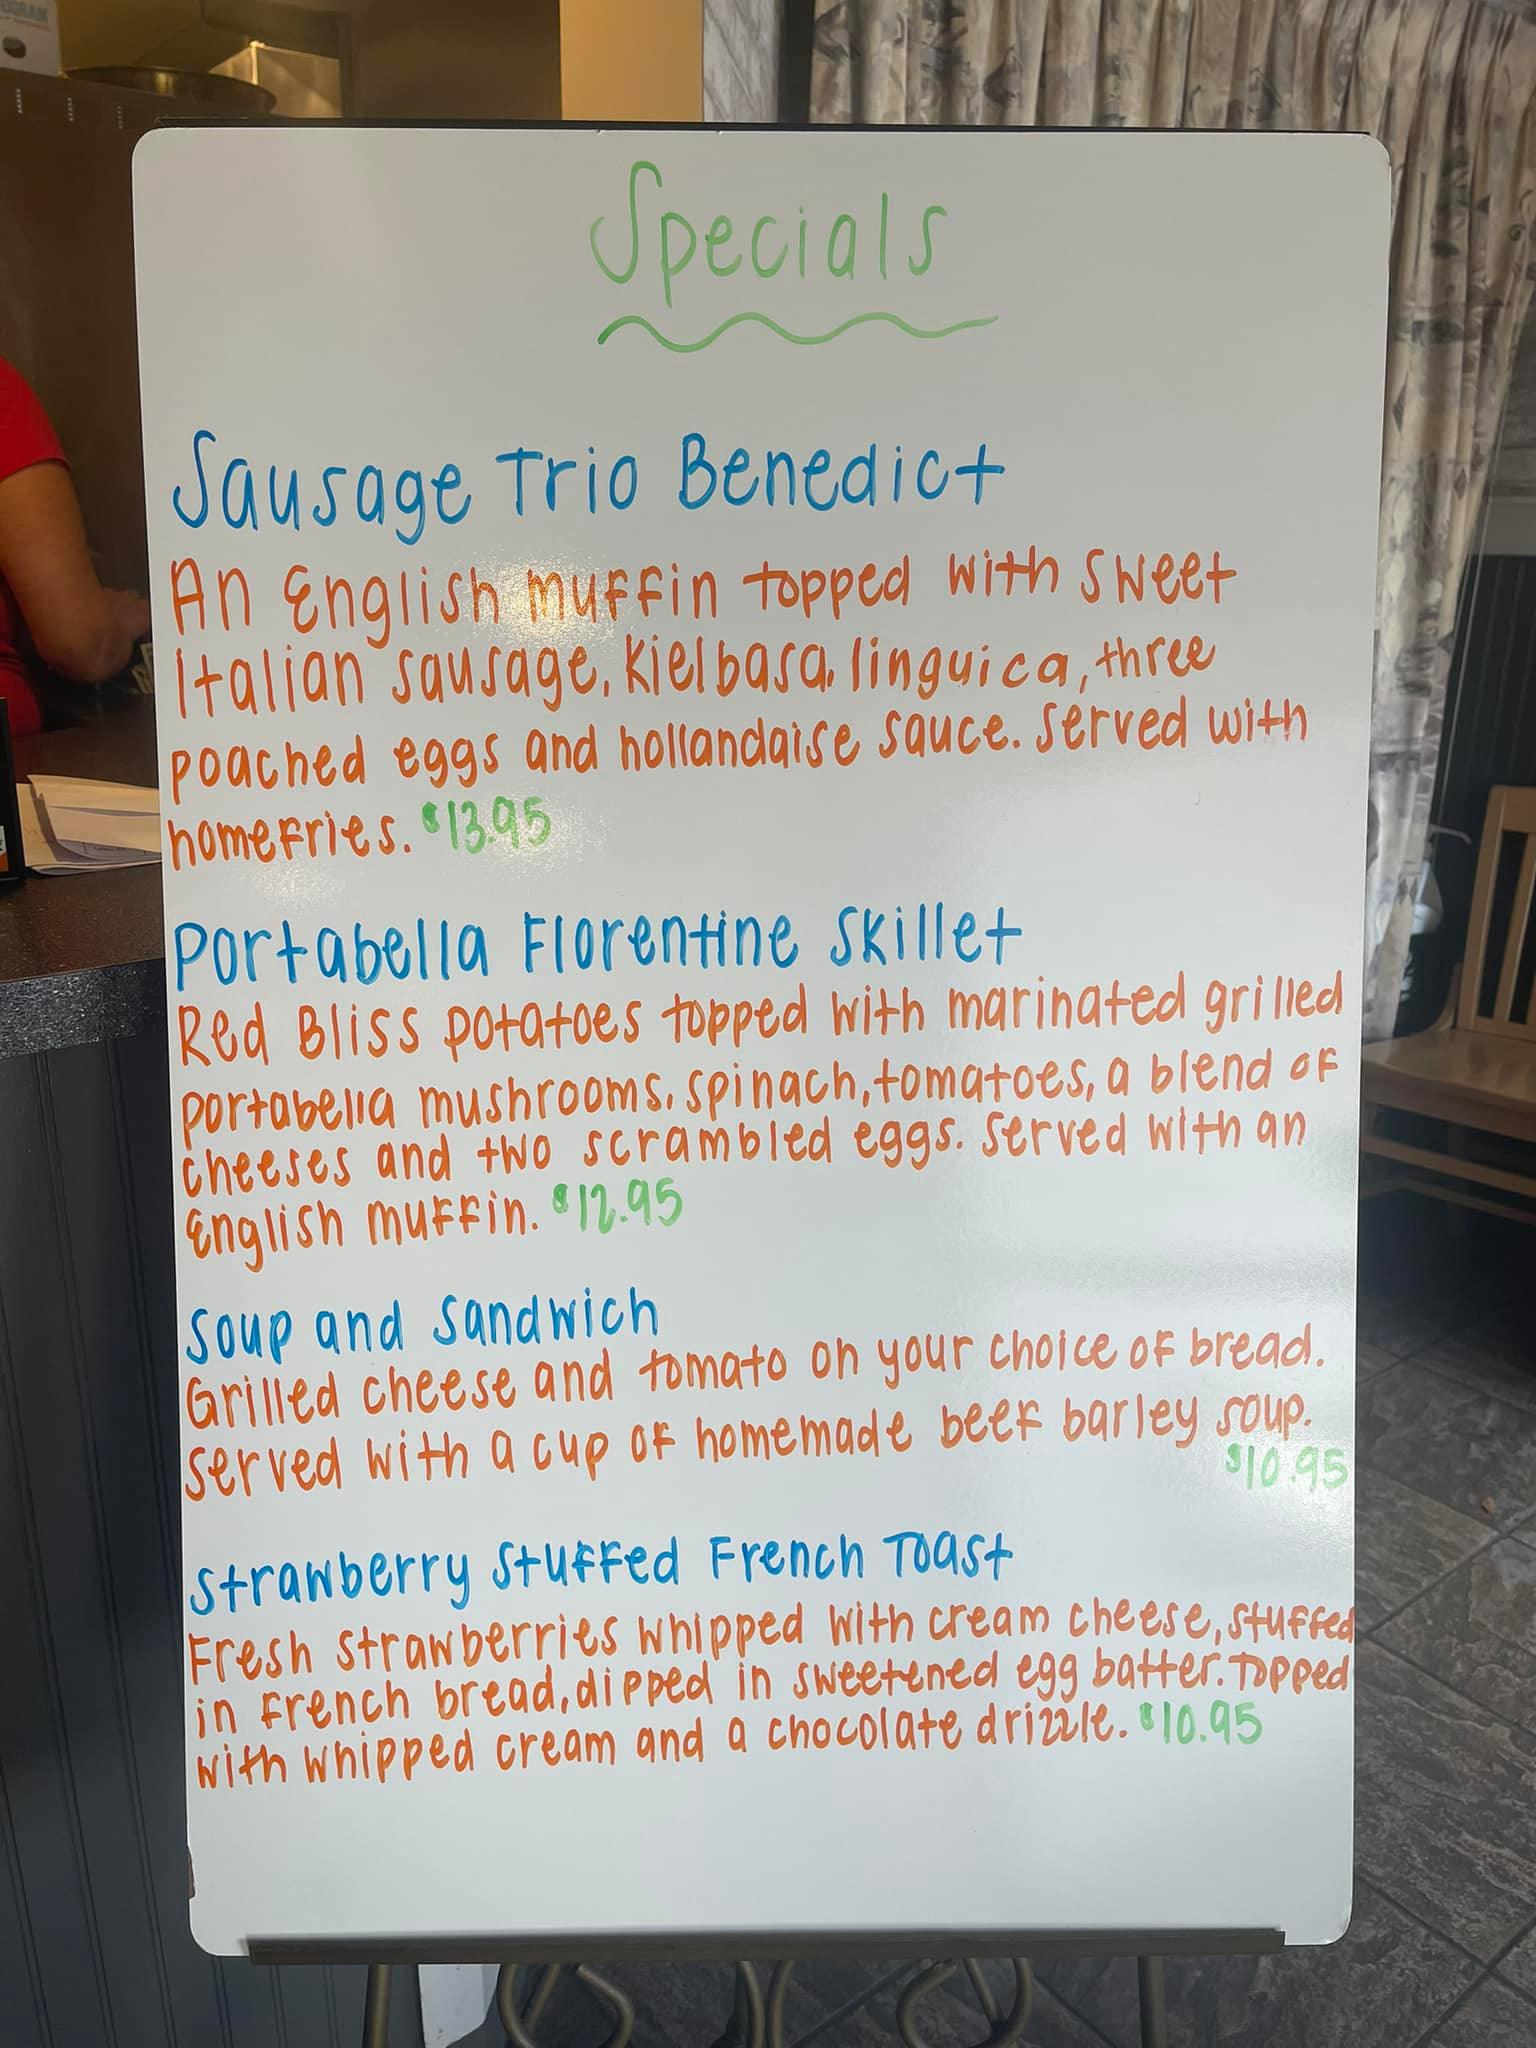 Specials
Sausage Trio Benedict
An English muffin topped with sweet
Italian sausage, Kielbasa, linguica, three
poached eggs and hollandaise sauce. Served with
homefries. $13.95
Portabella Florentine Skillet
Red Bliss potatoes topped with marinated grilled
portabella mushrooms, spinach, tomatoes, a blend of
cheeses and two scrambled eggs. Served with an
English muffin. $12.95
Soup and Sandwich
Grilled cheese and tomato on your choice of bread.
Served with a cup of homemade beef barley soup.
$10.95
Strawberry Stuffed French Toast
Fresh strawberries whipped with cream cheese, stuffed
in french bread, dipped in sweetened egg batter. Topped
with whipped cream and a chocolate drizzle. $10.95